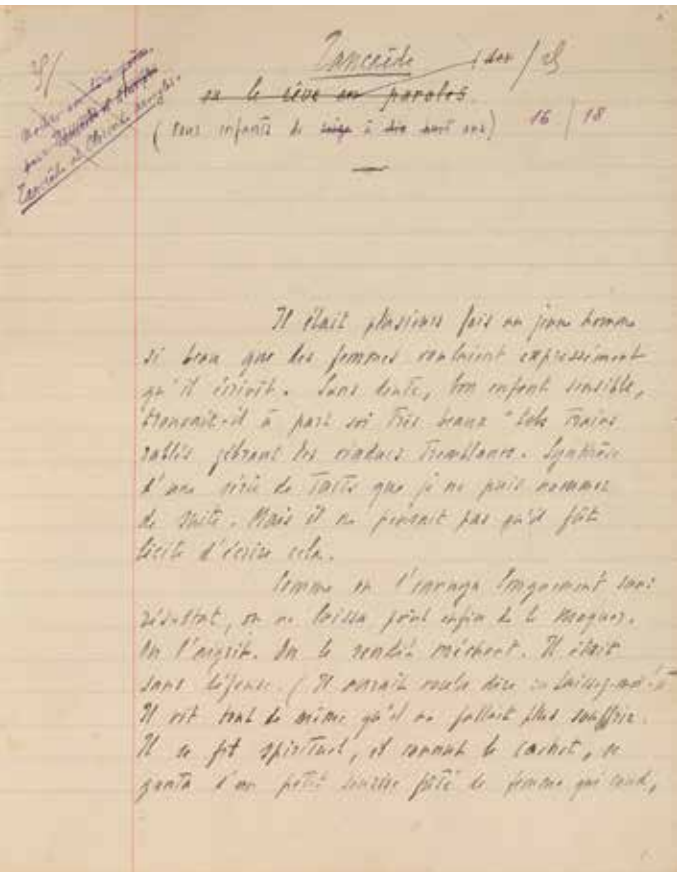 Tancrède
ou le rêve en paroles.
(pour enfants de seize à dix huit ans) 16 / 18
Tancrède et
Il était plusieurs fois un jeune homme
si beau que des femmes voulaient expressément
qu'il écrivît. Sans doute, bon enfant sensible,
trouvait-il à part soi très beaux "tels trains
rablés zébrant les viaducs tremblants. Synthèse
d'une série de
de suite. Mais il ne pensait pas qu'il fût
licite d'écrire cela.
Comme on l'enragea longuement sans
résultat, on ne laissa point enfin de le moquer.
On l'aigrit. On le rendit méchant. Il était
sans défense. (Il aurait voulu dire : "Laissez-moi"
Il vit tout de même qu'il ne fallait plus souffrir.
Il se fit spirituel, et connut le cachet, se
ganta d'un petit sourire de femme qui coud,